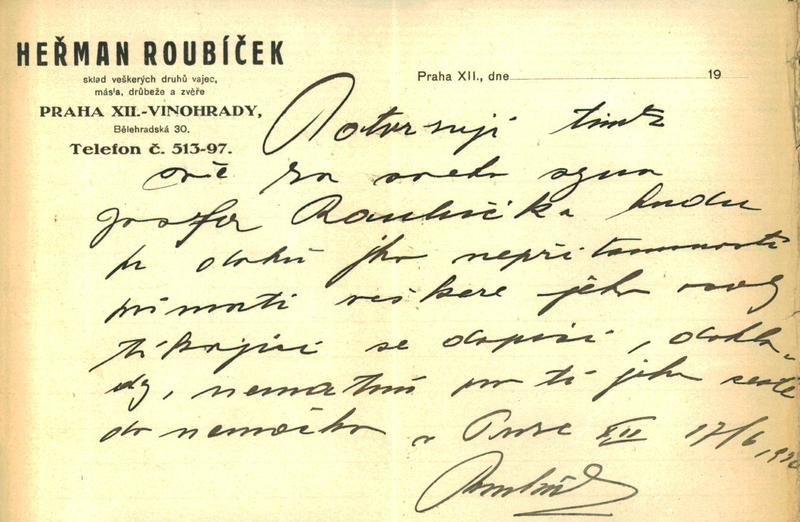 HEŘMAN ROUBÍČEK
sklad veškerých druhů vajec,
másla, drůbeže a zvěře
PRAHA XII.-VINOHRADY,
Bělehradská 30.
Telefon č. 513-97.
Praha XII., dne 19
Potvrzuji tímto
že za svého syna
Josefa Roubíčka budu
po dobu jeho nepřítomnosti
přímati veškeré jeho osob
týkající se dopisi, dokla-
dy, jeho cestě
do nemačka v Praze XII 17/6
Roubíček